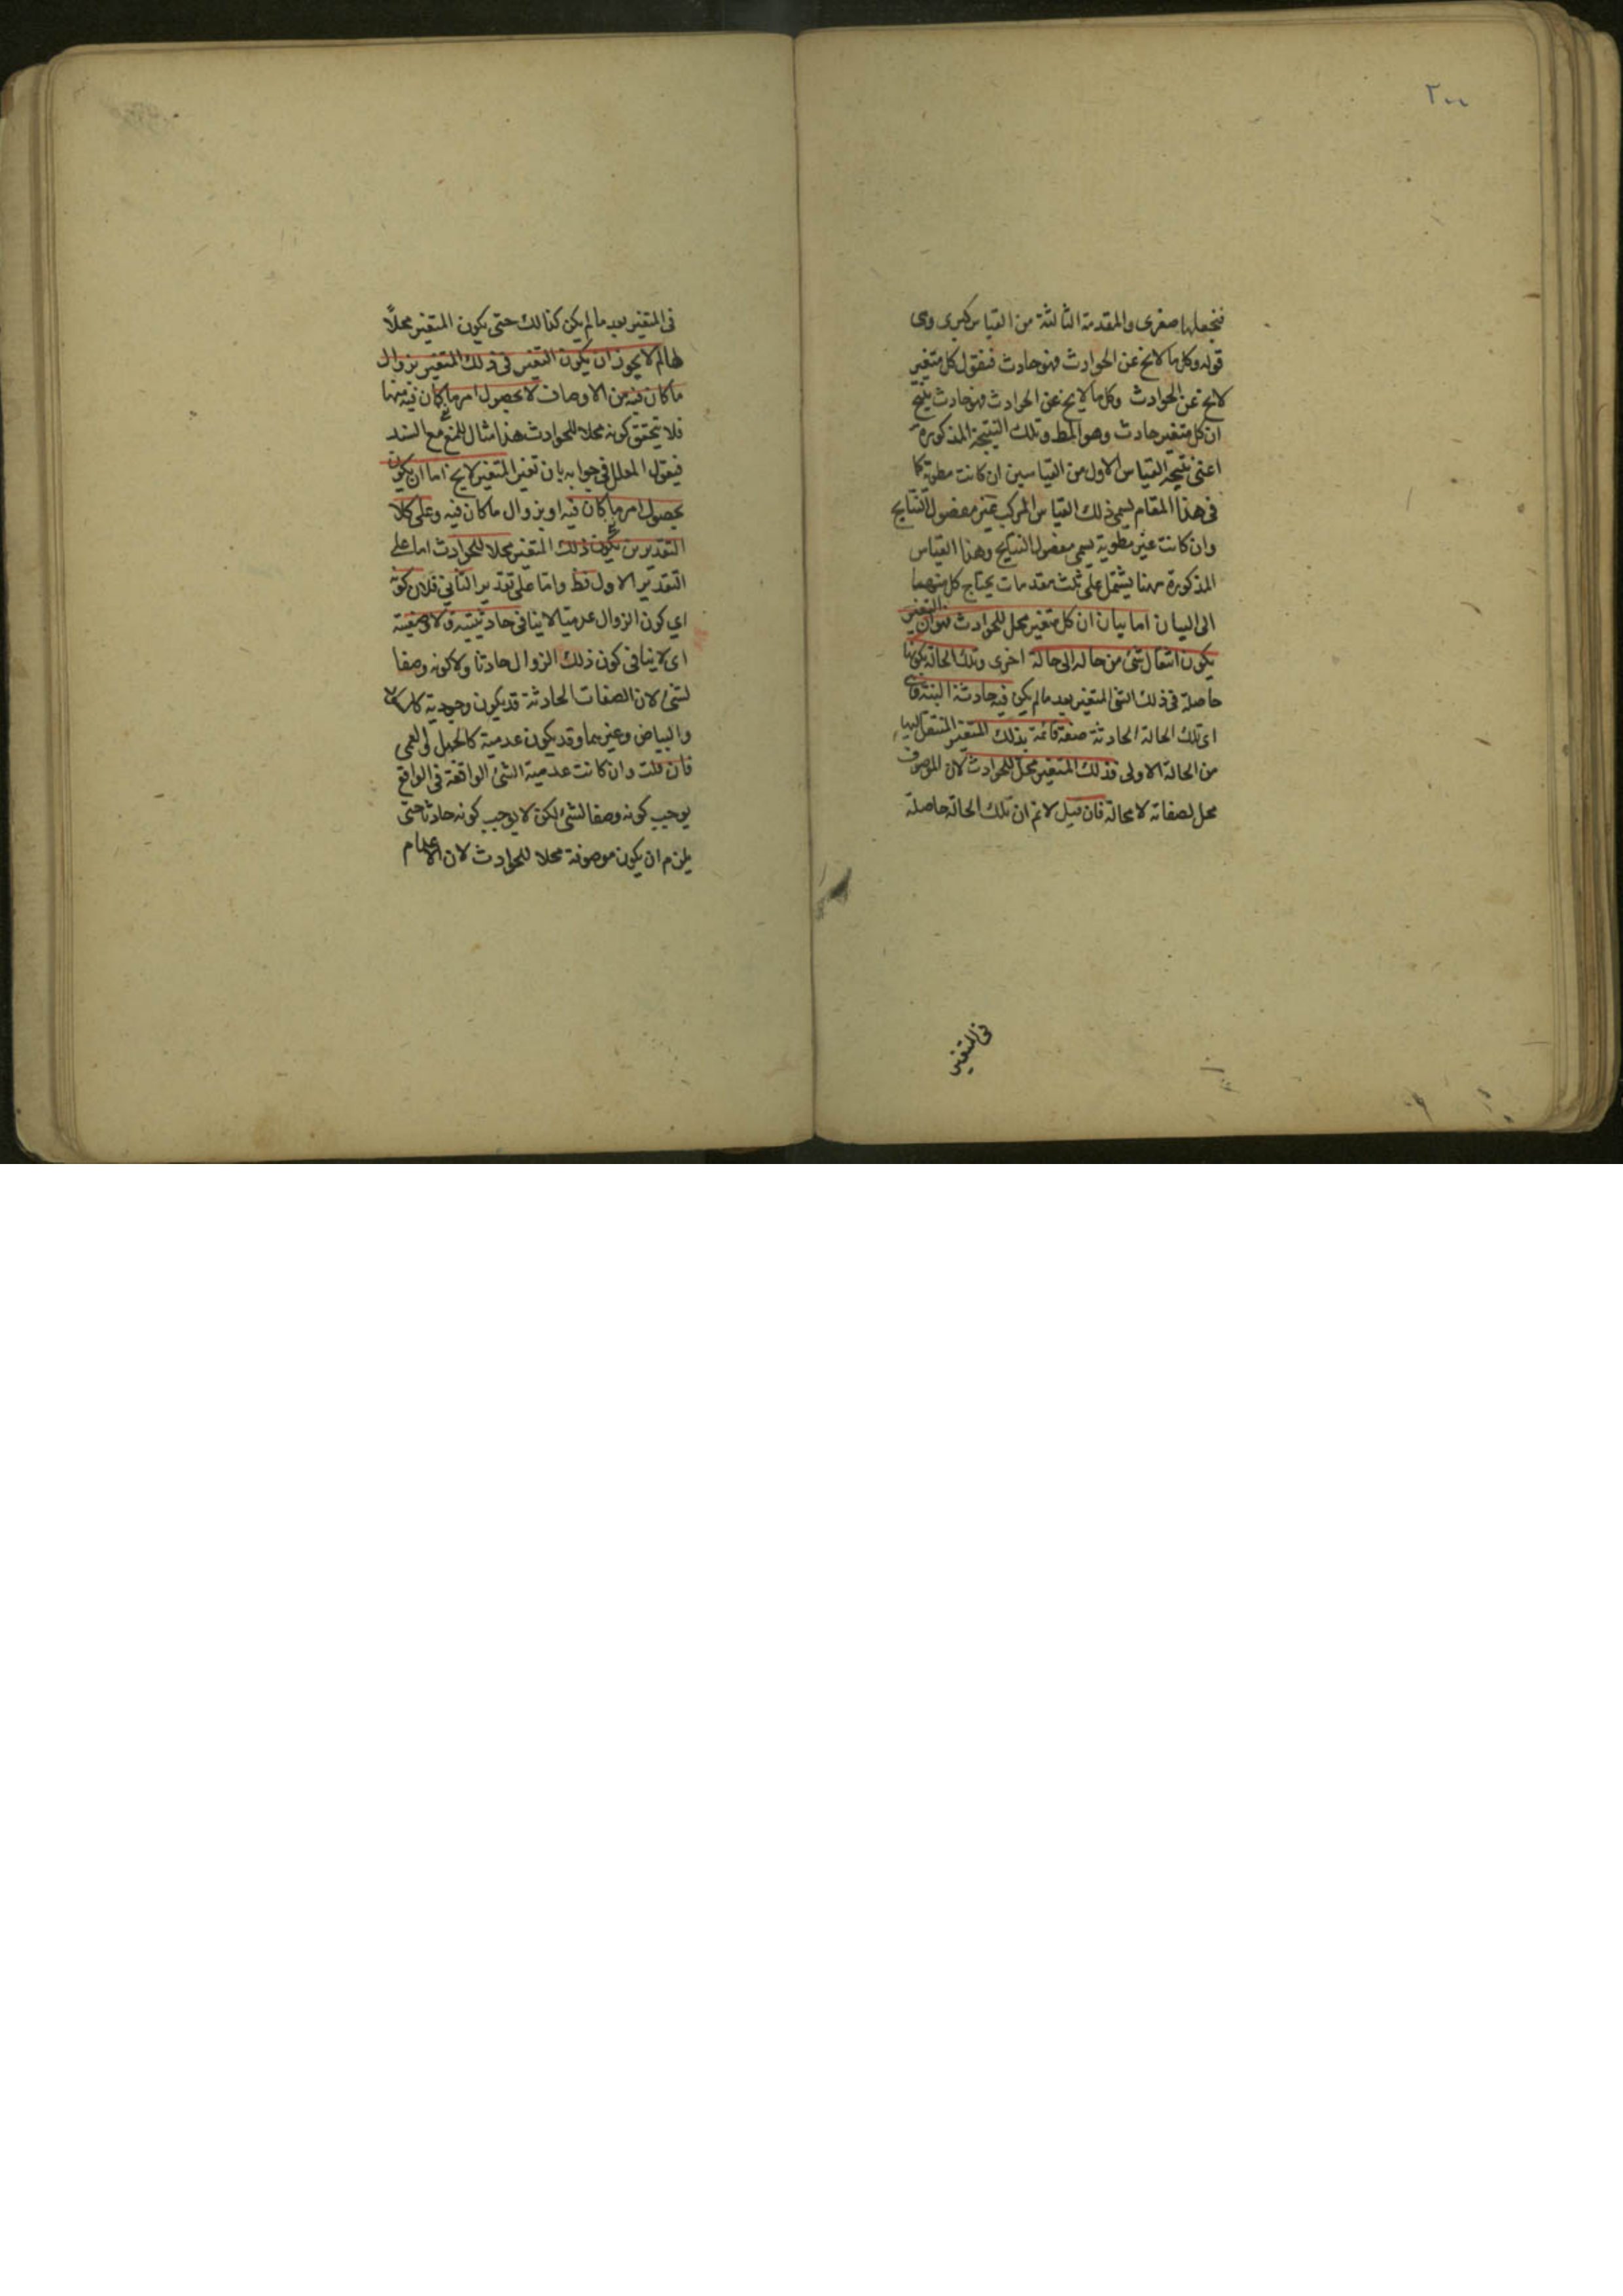 ٢٠٠
فنجعلها صغرى والمقدمة الثالثة من القياس كبرى وهي
قوله وكل ما لايخ عن الحوادث فهو حادث فنقول كل متغير
لايخ عن الحوادث وكل ما لايخ عن الحوادث فهو حادث ينتج
ان كل متغير حادث وهو المط وتلك النتيجة المذكورة
اعنى نتيجة القياس الاول من القياسين ان كانت مطوية كما
فى هذا المقام يسمى ذلك القياس المركب غير مفصول النتايج
وان كانت غير مطوية يسمى مفصول النتايج وهذا القياس
المذكورة ههنا يشتمل على ثلث مقدمات يحتاج كل منهما
الى البيان اما بيان ان كل متغير محل للحوادث فهو ان التغير
يكون انتقال شئ من حالة الى حالة اخرى وتلك الحالة بكونها
حاصلة فى ذلك الشئ المتغير بعد مالم يكن فيه حادثة البتة فهى
اى تلك الحالة الحادثة صفة قائمة بذلك المتغير المنتقل اليها
من الحالة الاولى فذلك المتغير محل للحوادث لان الموصوف
محل لصفاته لا محالة فان قيل لانم ان تلك الحالة حاصلة
فى المتغير
فى المتغير بعد مالم يكن كذالك حتى يكون المتغير محلاً
لها لم لا يجوز ان يكون التغير فى ذلك المتغير بزوال
ما كان فيه من الاوصاف لا بحصول امر ما كان فيه منها
فلا يتحقق كونه محلا للحوادث هذا مثال للمنع مع السند
فيقول المعلل فى جوابه بان تغير المتغير لايخ اما ان يكون
بحصول امر ما كان فيه او بزوال ما كان فيه وعلى كلا
التقديرين يكون ذلك المتغير محلا للحوادث اما على
التقدير الاول فظ واما على تقدير الثانى فلان كونه
اى كون الزوال عدميا لا ينافى حادثيته ولا وصفيته
اى لا ينافى كون ذلك الزوال حادثا ولا كونه وصفا
لشئ لان الصفات الحادثة قد يكون وجودية كالسواد
والبياض وغيرهما وقد يكون عدمية كالجهل والعمى
فان قلت وان كانت عدمية الشئ الواقعة فى الواقع
يوجب كونه وصفا لشئ لكن لا يوجب كونه حادثا حتى
يلزم ان يكون موصوفة محلا للحوادث لان الاعدام